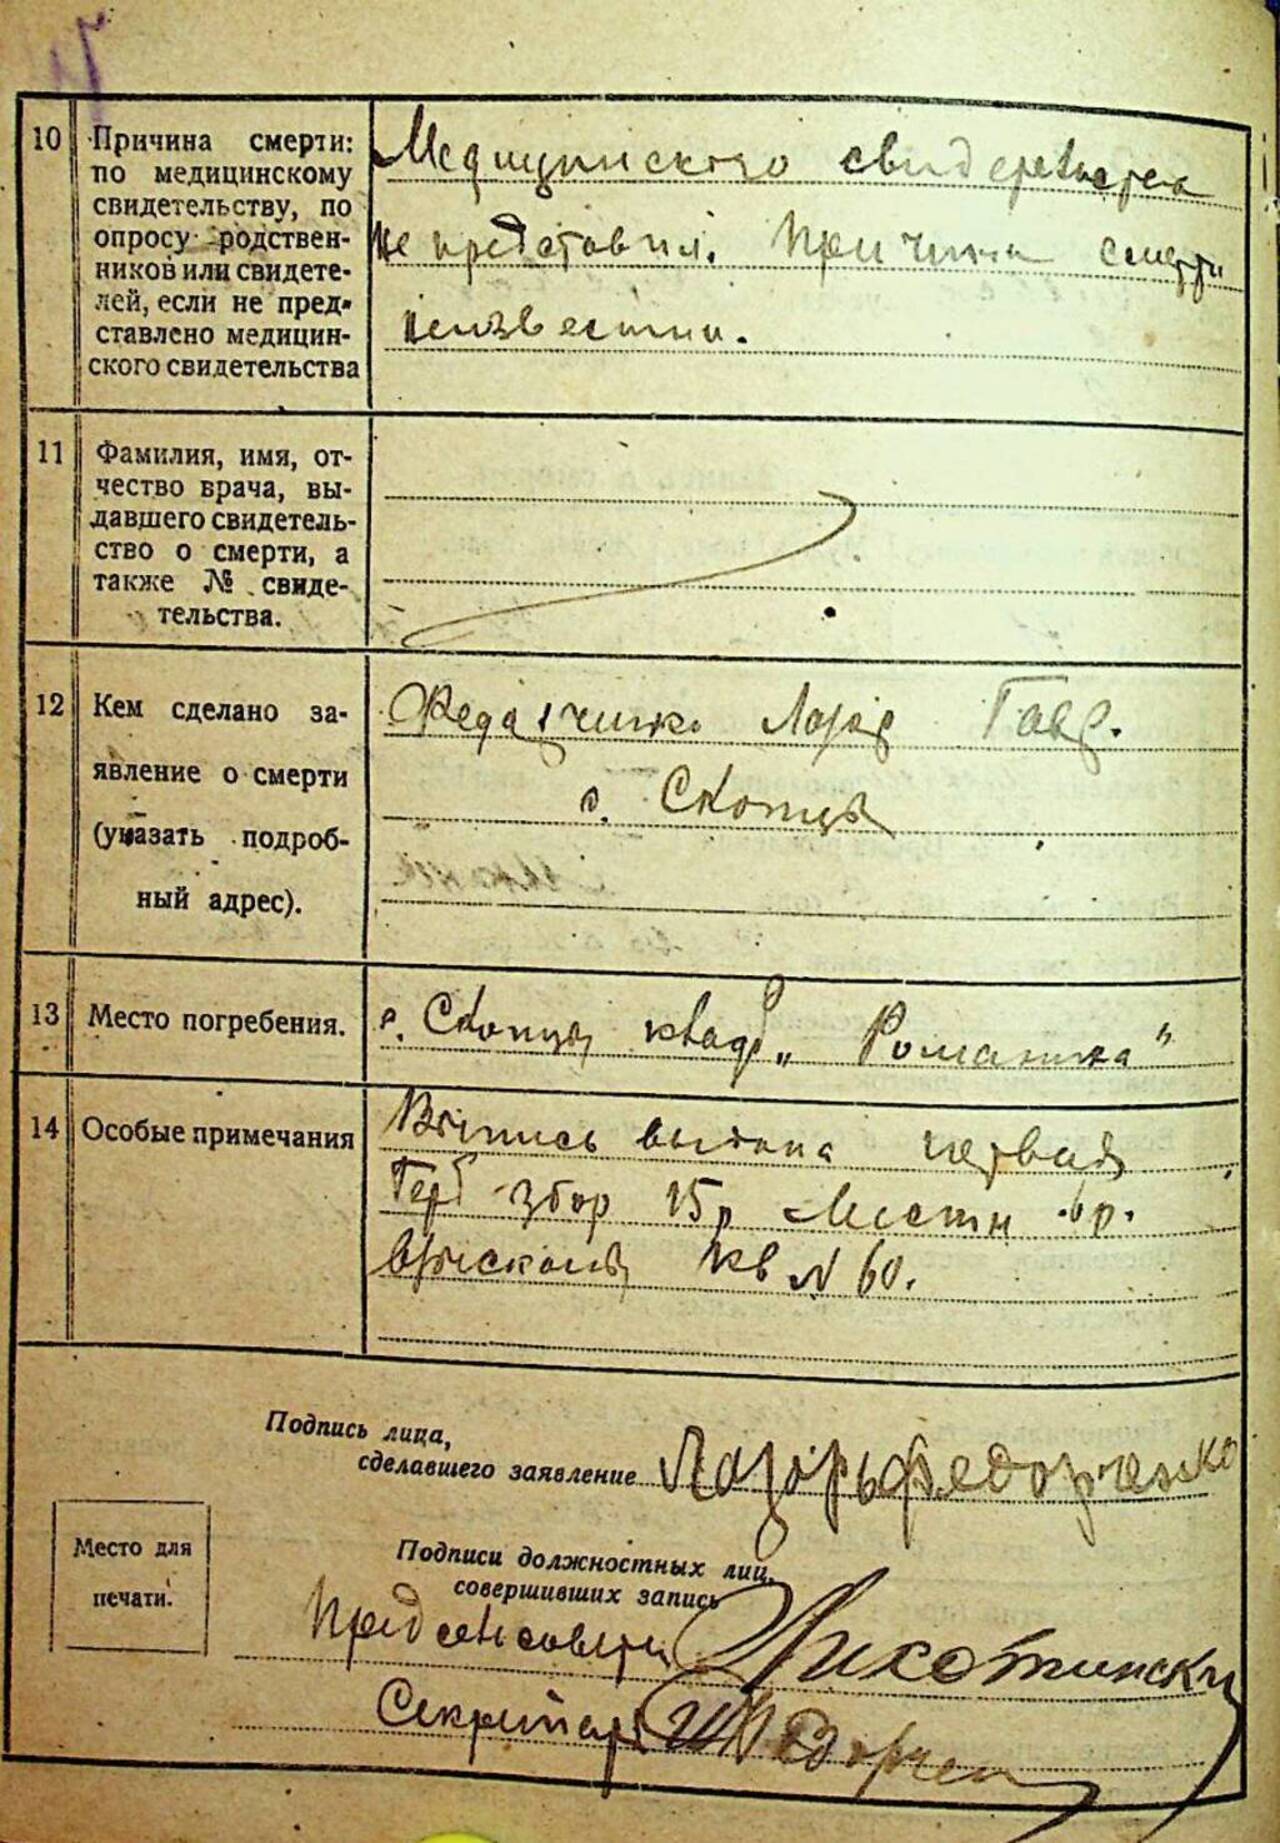 10
Причина смерти:
по медицинскому
свидетельству, по
опросу родствен-
ников или свидете-
лей, если не пред-
ставлено медицин-
ского свидетельства
Медицинского свидетельства
не представил. Причина смерти
неизвестна.
11
Фамилия, имя, от-
чество врача, вы-
давшего свидетель-
ство о смерти, а
также № свиде-
тельства.
12
Кем сделано за-
явление о смерти
(указать подроб-
ный адрес).
Федорченко Лазар Гавр.
с. Скопцы
13
Место погребения.
с. Скопцы кладб „Романика"
14
Особые примечания
Выпись выдана первая
Герб збор 15р Местн 6р.
взыскано кв N 60.
Подпись лица,
сделавшего заявление Лазорь Федорченко
Место для
печати.
Подписи должностных лиц,
совершивших запись
Пред сельсовета
Секретарь Федорчен